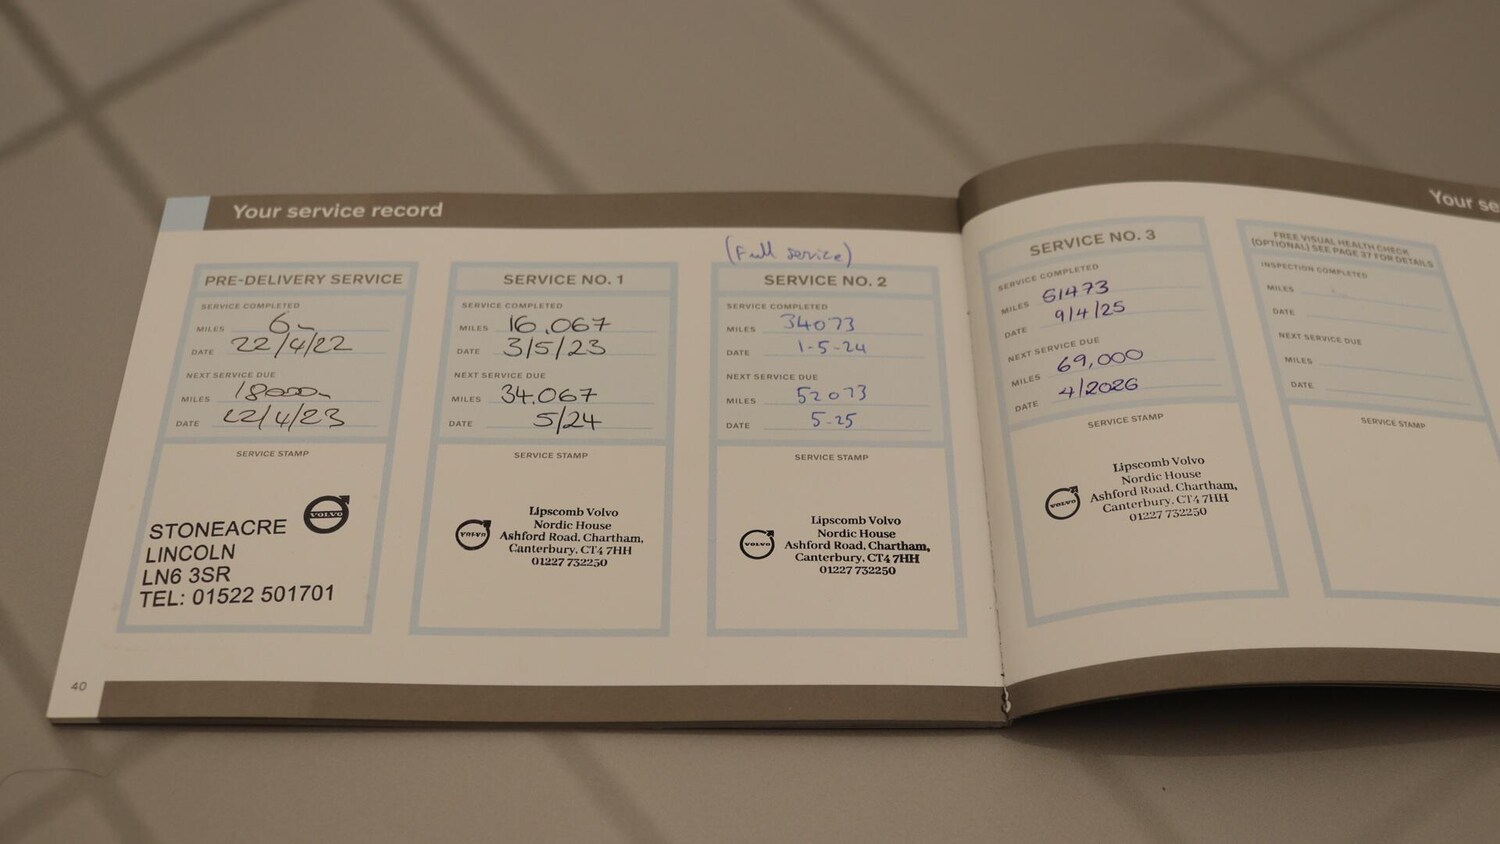 Your service record
PRE-DELIVERY SERVICE
SERVICE COMPLETED
MILES 6
DATE 22/4/22
NEXT SERVICE DUE
MILES 18000
DATE 22/4/23
SERVICE STAMP
VOLVO
STONEACRE
LINCOLN
LN6 3SR
TEL: 01522 501701
SERVICE NO. 1
SERVICE COMPLETED
MILES 16,067
DATE 3/5/23
NEXT SERVICE DUE
MILES 34.067
DATE 5/24
SERVICE STAMP
VOLVO
Lipscomb Volvo
Nordic House
Ashford Road, Chartham,
Canterbury. CT4 7HH
01227 732250
(Full service)
SERVICE NO. 2
SERVICE COMPLETED
MILES 34073
DATE 1-5-24
NEXT SERVICE DUE
MILES 52073
DATE 5-25
SERVICE STAMP
VOLVO
Lipscomb Volvo
Nordic House
Ashford Road, Chartham,
Canterbury. CT4 7HH
01227 732250
40
SERVICE NO. 3
SERVICE COMPLETED
MILES 51473
DATE 9/4/25
NEXT SERVICE DUE
MILES 69,000
DATE 4/2026
SERVICE STAMP
VOLVO
Lipscomb Volvo
Nordic House
Ashford Road. Chartham,
Canterbury. CT4 7HH
01227 732250
Your se
FREE VISUAL HEALTH CHECK
(OPTIONAL) SEE PAGE 37 FOR DETAILS
INSPECTION COMPLETED
MILES
DATE
NEXT SERVICE DUE
MILES
DATE
SERVICE STAMP